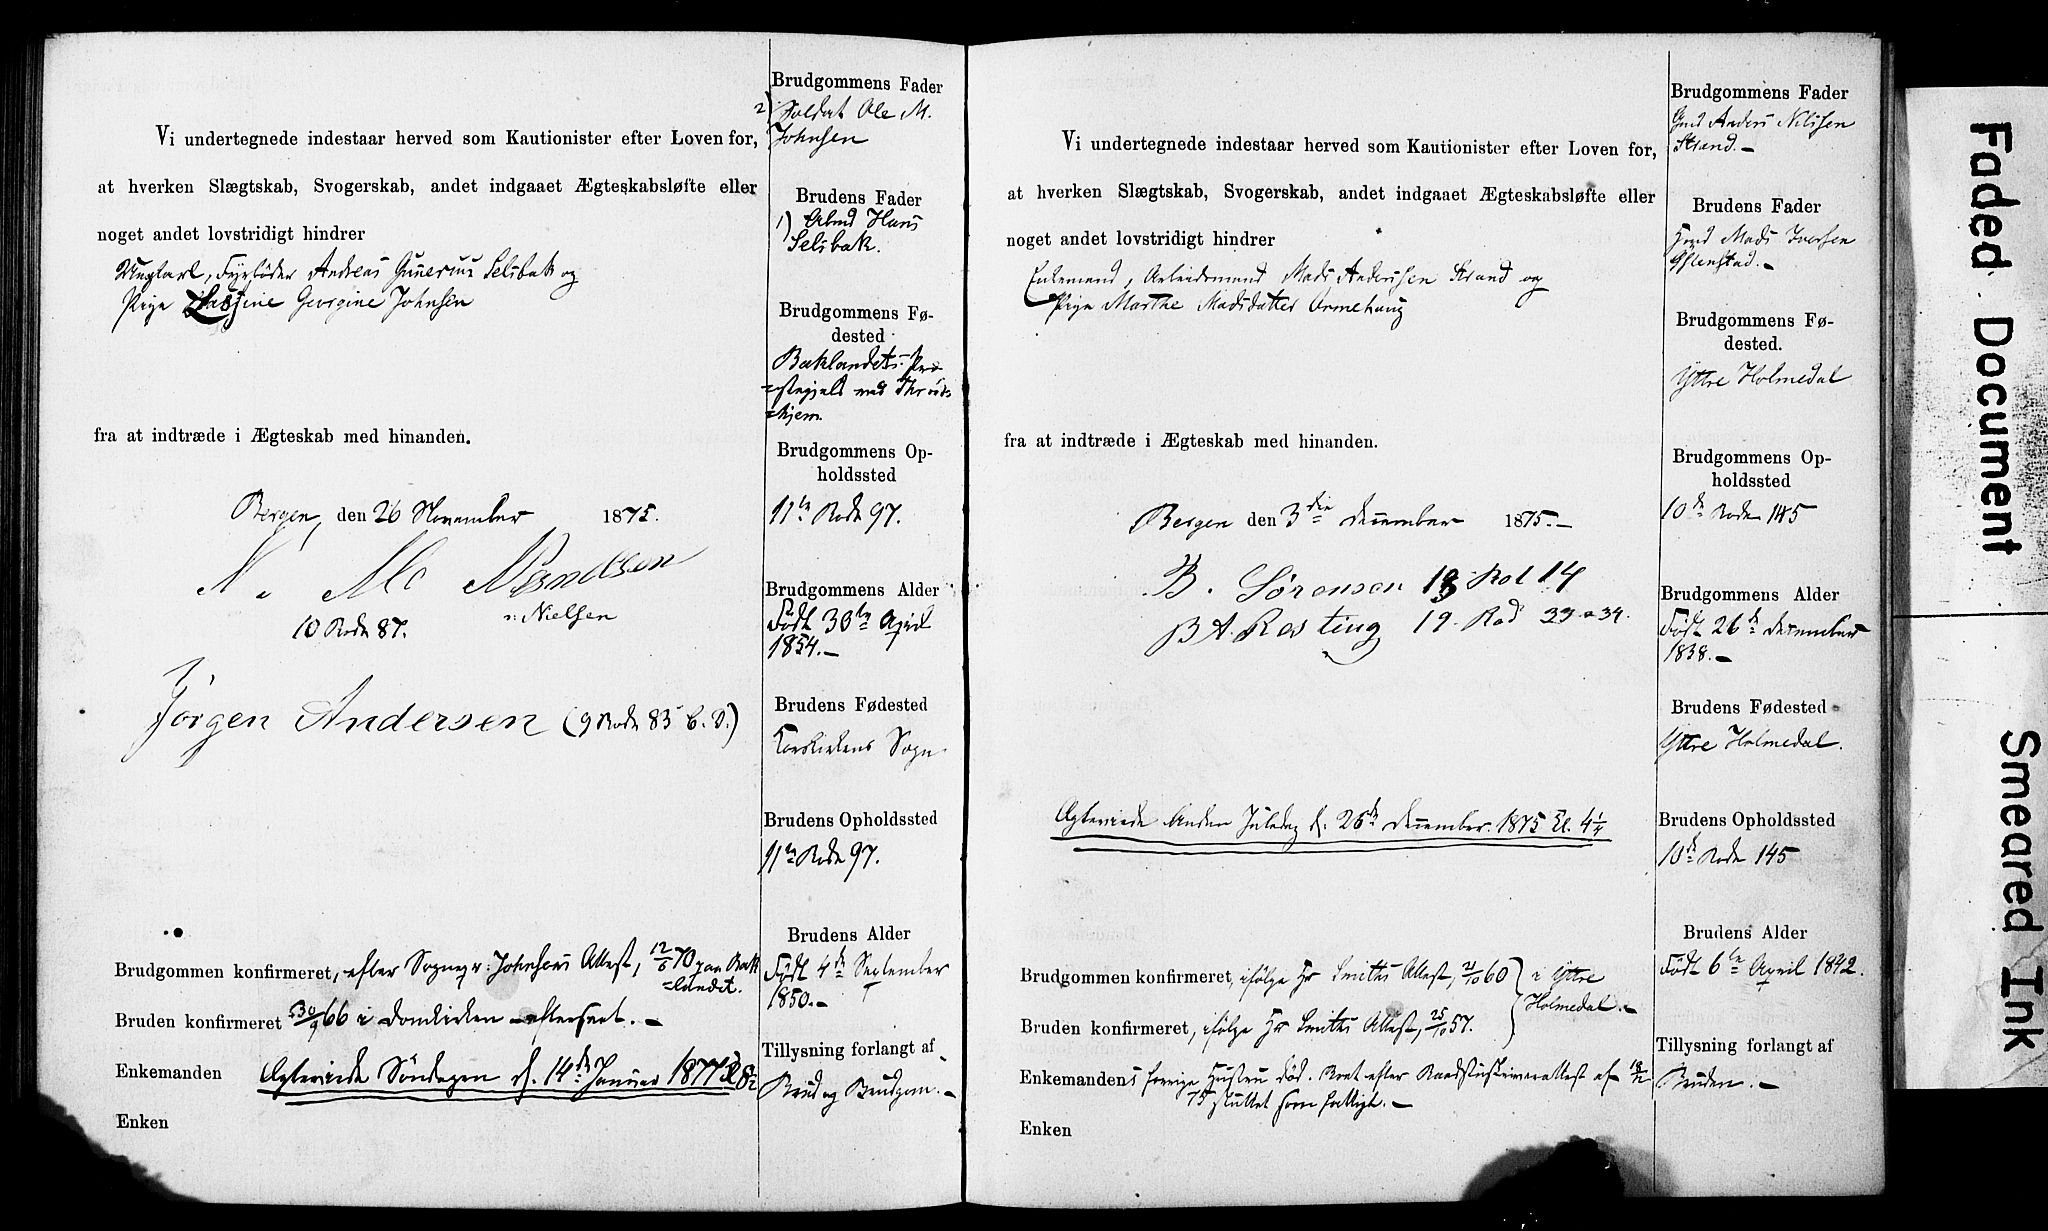 Vi undertegnede indestaar herved som Kautionister efter Loven for,
at hverken Slægtskab, Svogerskab, andet indgaaet Ægteskabsløfte eller
noget andet lovstridigt hindrer
Ungkarl, Fyrbøder Andreas Gunerius Selsbak og
Pige Georgine Johnsen
fra at indtræde i Ægteskab med hinanden.
Bergen, den 26 November 1875.
N. Mo
v: Nielsen
10 Rode 87.
Jørgen Andersen (9 Rode 85 b. D.)
Brudgommen konfirmeret, efter Sognepr: Johnsons Attest, 12/6 70 paa Bak
=landet.
Bruden konfirmeret 30/9 66 i Domkirken - efterseet. -
Enkemanden
Ægteviede Søndagen d. 14de Januar 1877
Enken
Brudgommens Fader
2) Soldat Ole M.
Johnsen
Brudens Fader
1) Arbmd Hans
Selsbak.
Brudgommens Fø-
dested
Baklandets Præ
=stegjeld ved Thrond
=hjem.
Brudgommens Op-
holdssted
11te Rode 97.
Brudgommens Alder
Født 30te April
1854. -
Brudens Fødested
Korskirkens Sogn
Brudens Opholdssted
11te Rode 97.
Brudens Alder
Født 4de September
1850. -
Tillysning forlangt af
Brud og Brudgom. -
Vi undertegnede indestaar herved som Kautionister efter Loven for,
at hverken Slægtskab, Svogerskab, andet indgaaet Ægteskabsløfte eller
noget andet lovstridigt hindrer
Enkemand, Arbeidsmand Mads Andersen Strand og
Pige Marthe Madsdatter Ormehaug
fra at indtræde i Ægteskab med hinanden.
Bergen den 3die December 1875. -
B. Sørensen 13 Rod 14
B A. Rosting 19. Rod 33 & 34.
Ægteviede Anden Juledag d. 26de December 1875 Kl. 4 1/4
Brudgommen konfirmeret, ifølge Hr Smiths Attest, 21/10 60 } i Yttre
Holmedal. -
Bruden konfirmeret, ifølge Hr Smiths Attest, 25/10 57.
Enkemandens forrige Hustru død. Boet efter Raadstueskriverattest af
75 sluttet som fattigt. -
Enken
Brudgommens Fader
Gmd Anders Nilssen
Strand. -
Brudens Fader
Mads Iversen
Brudgommens Fø-
dested.
Yttre Holmedal
Brudgommens Op-
holdssted
10de Rode 145
Brudgommens Alder
Født 26de December
1838. -
Brudens Fødested
Yttre Holmedal.
Brudens Opholdssted
10de Rode 145
Brudens Alder
Født 6te April 1842.
Tillysning forlangt af
Bruden. -
Faded Document
Smeared Ink